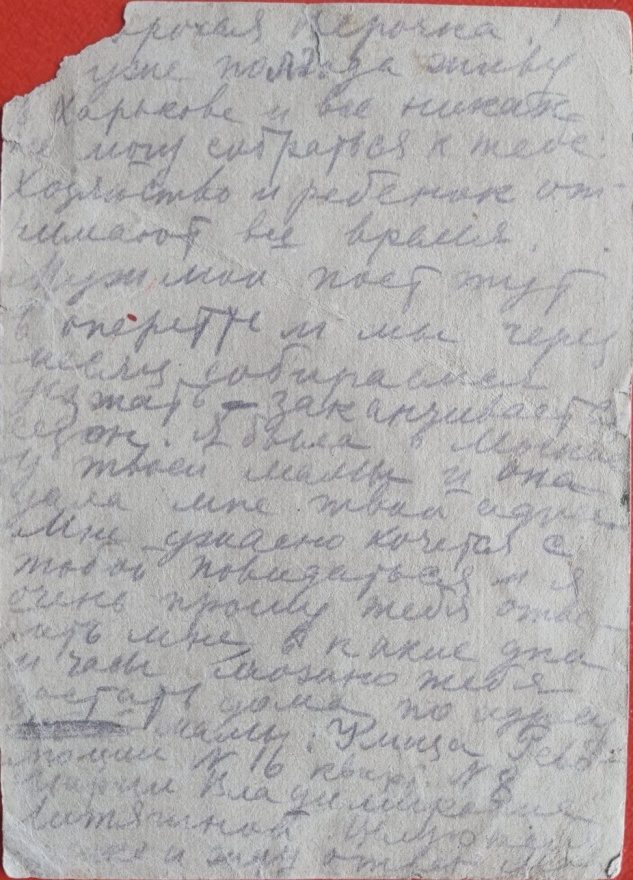 рогая Верочка!
уже полгода живу
в Харькове и все никак
не могу собраться к тебе.
Хозяйство и ребенок от-
нимают все время.
Муж мой поет тут
в оперетте и мы через
месяц собираемся
уезжать – заканчивается
сезон. Я была в Москве
у твоей мамы и она
дала мне твой адрес
Мне ужасно хочется с
тобой повидаться и я
очень прошу тебя отве-
тить мне, в какие дни
и часы можно тебя
застать дома по адресу
мамы: Улица Рево-
люции N 6 кварт. N 8
Марии Владимировне
Целую тебя
и жду ответ